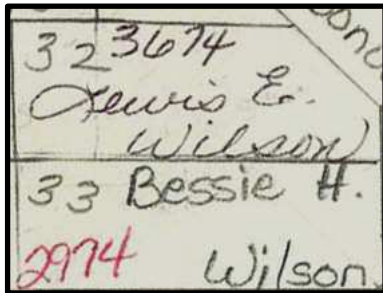 32 3674
Lewis E.
Wilson
33 Bessie H.
2974 Wilson